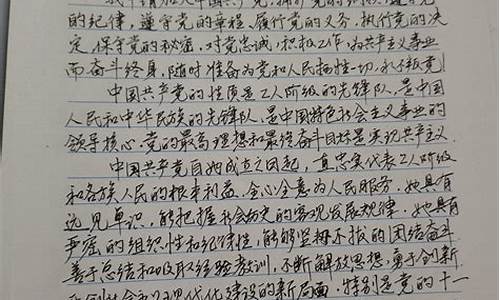 我申请加入中国共产党,拥护党的纲领,遵守党
的纪律,遵守党的章程,履行党的义务,执行党的决
定,保守党的秘密,对党忠诚,积极工作,为共产主义事业
而奋斗终身,随时准备为党和人民牺牲一切,永不叛党
中国共产党的性质是工人阶级的先锋队,是中国
人民和中华民族的先锋队,是中国特色社会主义事业的
领导核心,党的最高理想和最终奋斗目标是实现共产主义.
中国共产党自她成立之日起,直忠实代表工人阶级
和各族人民的根本利益,全心全意为人民服务.她具有
远见卓识,能把握社会历史的客观发展规律.她具有
严密的组织性和纪律性,能够坚持不拔的团结奋斗
善于总结和吸取经验教训,不断解放思想,勇于创新
社会主义现代化建设的新局面.特别是党的十一